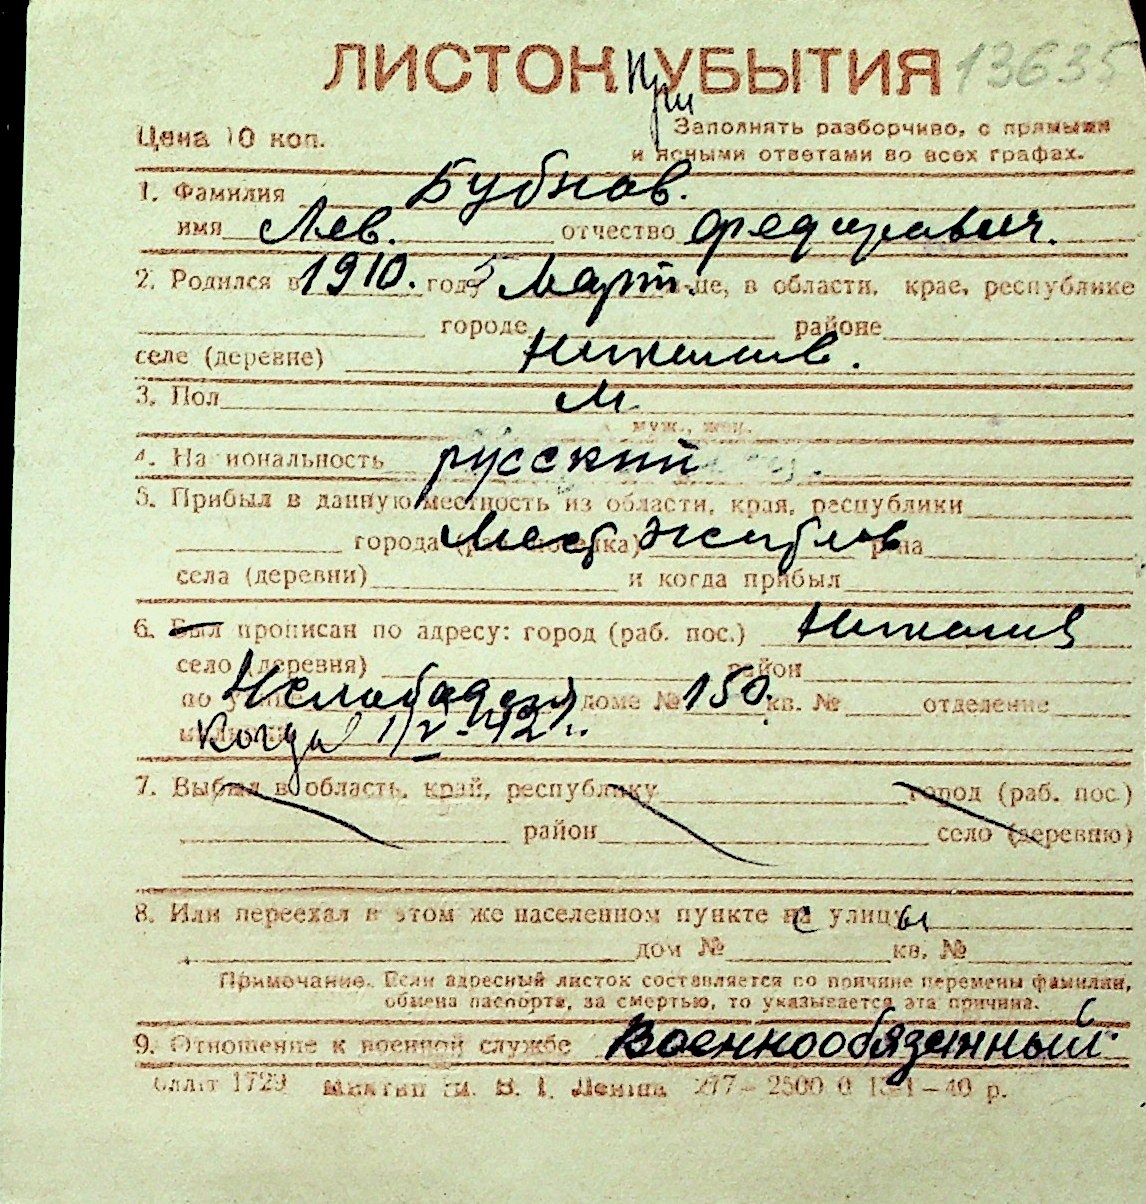 ЛИСТОК При УБЫТИЯ 13635
Цена 10 коп.
Заполнять разборчиво, с прямыми
и ясными ответами во всех графах.
1. Фамилия Бубнов.
имя Лев. отчество Федорович.
2. Родился в 1910. году 5 Март. м-це, в области, крае, республике
городе районе
селе (деревне)
3. Пол М
муж., жен.
4. Национальность русский
5. Прибыл в данную местность из области, края, республики
города (раб. поселка) Мест жител р-на
села (деревни) и когда прибыл
6. Был прописан по адресу: город (раб. пос.)
село (деревня) район
по улице доме № 150. кв. № отделение
милиции Когда 1/V-42 г.
7. Выбыл в область, край, республику город (раб. пос.)
район село (деревню)
8. Или переехал в этом же населенном пункте с улицы
дом № кв. №
Примечание. Если адресный листок составляется по причине перемены фамилии,
обмена паспорта, за смертью, то указывается эта причина.
9. Отношение к военной службе Военнообязанный
1729 им. В. И. Ленина 2500 0 40 р.